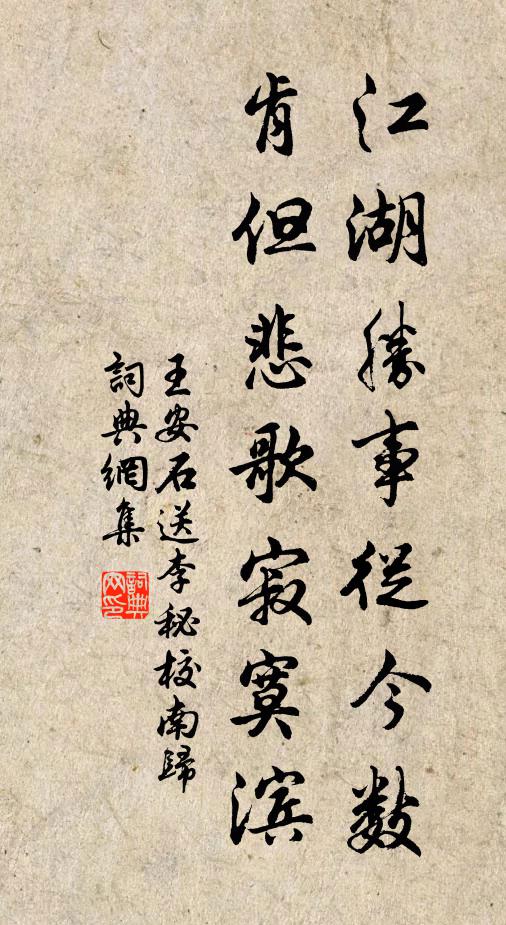 江湖勝事從今數
肯但悲歌寂寞滨
王安石送李秘校南歸
詞典網集
詞典
网印